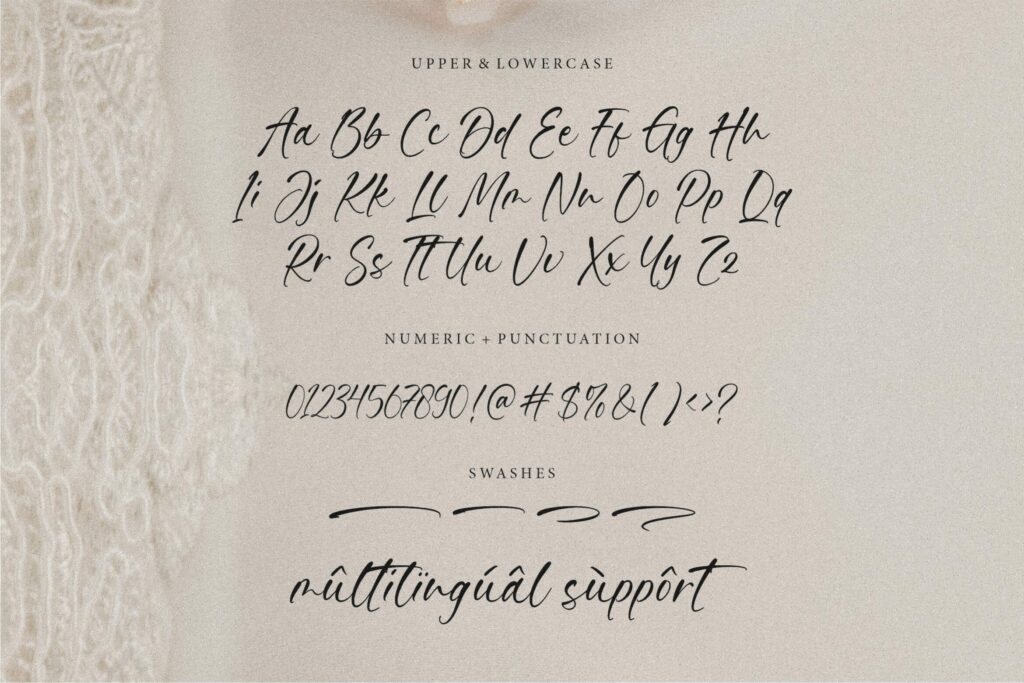 UPPER & LOWERCASE
Aa Bb Cc Dd Ee Ff Gg Hh
Ii Jj Kk Ll Mm Nn Oo Pp Qq
Rr Ss Tt Uu Vv Xx Yy Zz
NUMERIC + PUNCTUATION
01234567890!@#$%&()<>?
SWASHES
mûltitïngúâl sùppôrt